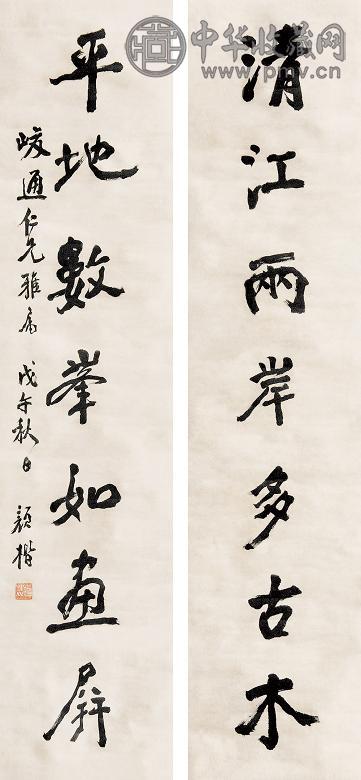 清江兩岸多古木
平地數峯如畫屏
峻通仁兄雅属 戊午秋日 顏楷
中华收藏网
www.pmv.cn